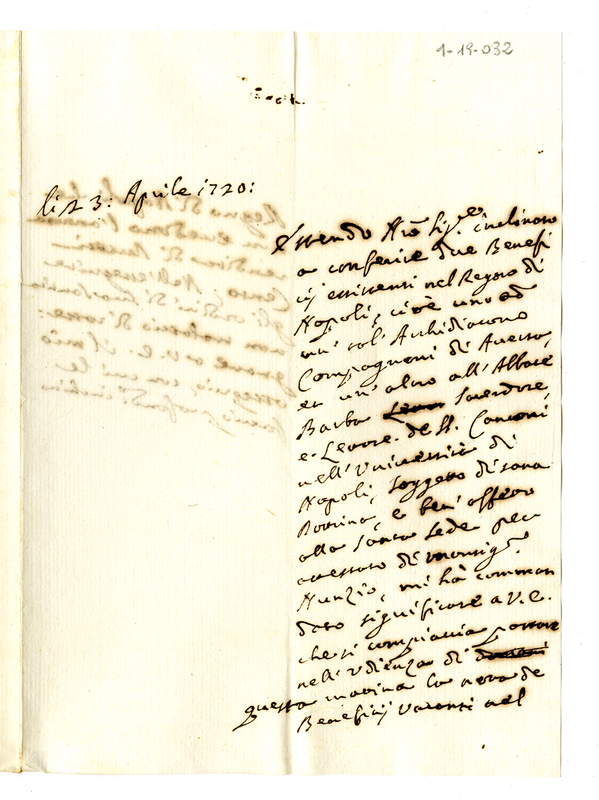 1-19-032
li 3: Aprile 1720:
Essendo Nrõ Sig.re inclinato
a conferire due Benefi
cij esistenti nel Regno di
Napoli, cioè uno ad
Archidiacono
Compagnoni di Aversa,
et un'altro all'Abbate
Barba Sacerdote,
e Lettore de SS. Canoni
nell'Università di
Napoli, soggetto di sana
Dottrina, e ben' affetto
alla Santa Sede per
attestato di monsig.r
Nunzio, mi hà comman
dato significare a V.E.
che si compiaccia portare
nell'Udienza di domani
questa matina la nota de
Beneficij Vacanti nel